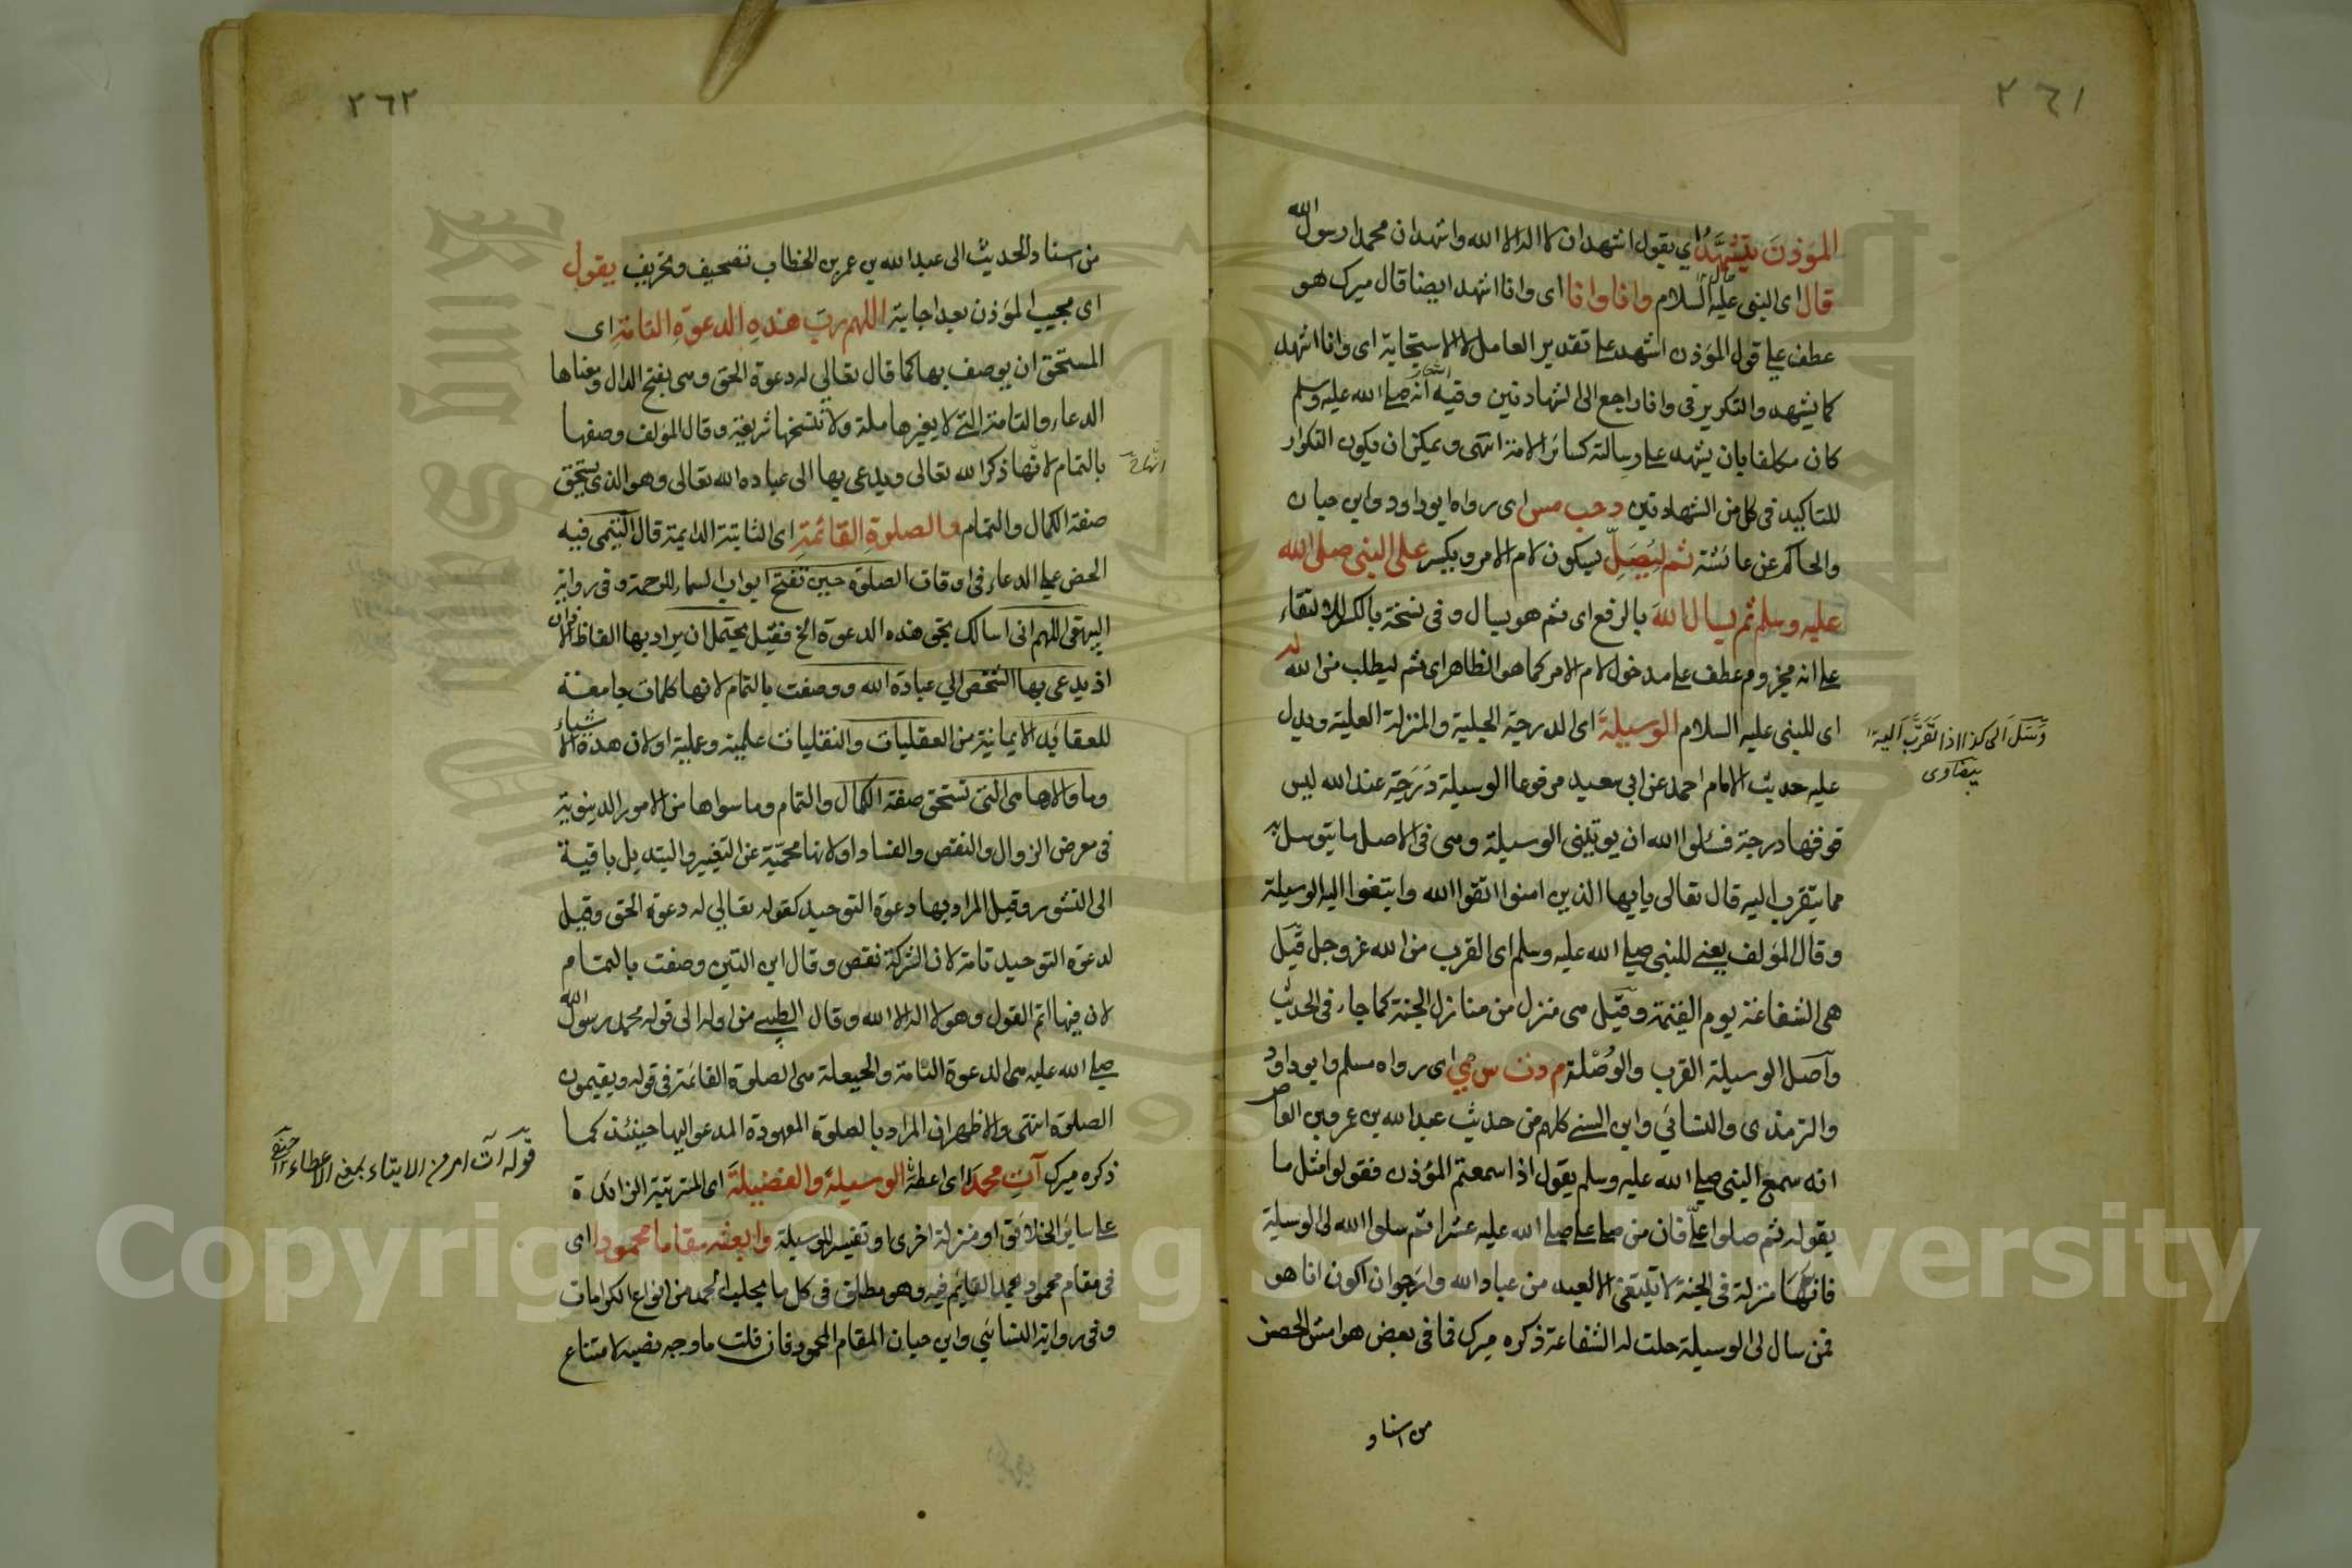 ٢٦١
المؤذن يتشهد اي يقول اشهد ان لا اله الا الله واشهد ان محمدا رسول الله
قال اى النبى عليه السلام وانا وانا اى وانا اشهد ايضا قال ميرك هو
عطف على قول المؤذن اشهد على تقدير العامل لا الاستجابة اى وانا اشهد
كما يشهد والتكرير فى وانا راجع الى الشهادتين وفيه انه صلى الله عليه وسلم
كان مكلفا بان يشهد على رسالته كسائر الامة انتهى ويمكن ان يكون التكرار
للتاكيد فى كل من الشهادتين د حب مس اى رواه ابوداود وابن حبان
والحاكم عن عائشة ثم ليصل بسكون لام الامر ويكسر على النبى صلى الله
عليه وسلم ثم يسال الله بالرفع اى ثم هو يسال وفى نسخة بالكسر لالتقاء
على انه مجزوم عطف على مدخول لام الامر كما هو الظاهر اى ثم ليطلب من الله له
اى للنبى عليه السلام الوسيلة اى الدرجة الجليلة والمنزلة العلية ويدل
عليه حديث الامام احمد عن ابى سعيد مرفوعا الوسيلة درجة عند الله ليس
فوقها درجة فسلوا الله ان يوتينى الوسيلة وهى فى الاصل ما يتوسل به
مما يتقرب اليه قال تعالى يايها الذين امنوا اتقوا الله وابتغوا اليه الوسيلة
وقال المؤلف يعنى للنبى صلى الله عليه وسلم اى القرب من الله عز وجل قيل
هى الشفاعة يوم القيمة وقيل هى منزل من منازل الجنة كما جاء فى الحديث
وآصل الوسيلة القرب والوصلة م د ت س ى اى رواه مسلم وابوداود
والترمذى والنسائي وابن السنى كلهم من حديث عبد الله بن عمرو بن العاص
انه سمع النبى صلى الله عليه وسلم يقول اذا سمعتم المؤذن فقولوا مثل ما
يقوله ثم صلوا على فان من صلى على صلى الله عليه عشرا ثم سلوا الله لى الوسيلة
فانها منزلة فى الجنة لا تبتغى الا لعبد من عباد الله وارجوا ان اكون انا هو
فمن سال لى الوسيلة حلت له الشفاعة ذكره ميرك فما فى بعض هوامش الحصن
من اسناد
وسل الى كذا اذا تقرب اليه
بيضاوى
٢٦٢
من اسناد الحديث الى عبد الله بن عمر بن الخطاب تصحيف وتحريف يقول
اى مجيب المؤذن بعد اجابته اللهم رب هذه الدعوة التامة اى
المستحق ان يوصف بها كما قال تعالى له دعوة الحق وهى بفتح الدال ومعناها
الدعاء والتامة التى لا يغيرها ملة ولا تنسخها شريعة وقال المؤلف وصفها
بالتمام لانها ذكر الله تعالى ويدعى بها الى عباده الله تعالى وهو الذى يستحق
صفة الكمال والتمام والصلوة القائمة اى الثابتة الدايمة قال التيمى فيه
الحض على الدعاء فى اوقات الصلوة حين تفتح ابواب السماء للرحمة وفى رواية
البيهقى اللهم انى اسالك بحق هذه الدعوة الخ فقيل يحتمل ان يراد بها الفاظ الاذان
اذ يدعى بها الشخص الي عبادة الله ووصفت بالتمام لانها كلمات جامعة
للعقايد الايمانية من العقليات والنقليات علمية وعملية او لان هذه الاشياء
وما والاها هى التى تستحق صفة الكمال والتمام وما سواها من الامور الدنيوية
فى معرض الزوال والنقص والفساد او لانها محمية عن التغيير والتبديل باقية
الى النشور وقيل المراد بها دعوة التوحيد كقوله تعالي له دعوة الحق وقيل
لدعوة التوحيد تامة لان الشركة نقص وقال ابن التين وصفت بالتمام
لان فيها اتم القول وهو لا اله الا الله وقال الطيبى من اوله الى قوله محمد رسول الله
صلى الله عليه هى الدعوة التامة والحيعلة هى الصلوة القائمة فى قوله ويقيمون
الصلوة انتهى والاظهر ان المراد بالصلوة المعهودة المدعو اليها حينئذ كما
ذكره ميرك آت محمدا اى اعطه الوسيلة والفضيلة اى المرتبة الزائدة
على ساير الخلائق او منزلة اخرى او تفسير للوسيلة وابعثه مقاما محمودا اى
فى مقام محمود يحمد القايم فيه وهو مطلق فى كل ما يجلب الحمد من انواع الكرامات
وفى رواية النسائي وابن حبان المقام المحمود فان قلت ما وجه نصبه لامتناع
قوله آت امر من الايتاء بمعنى الاعطاء ١٢ حنفى
Copyright © King Saud University